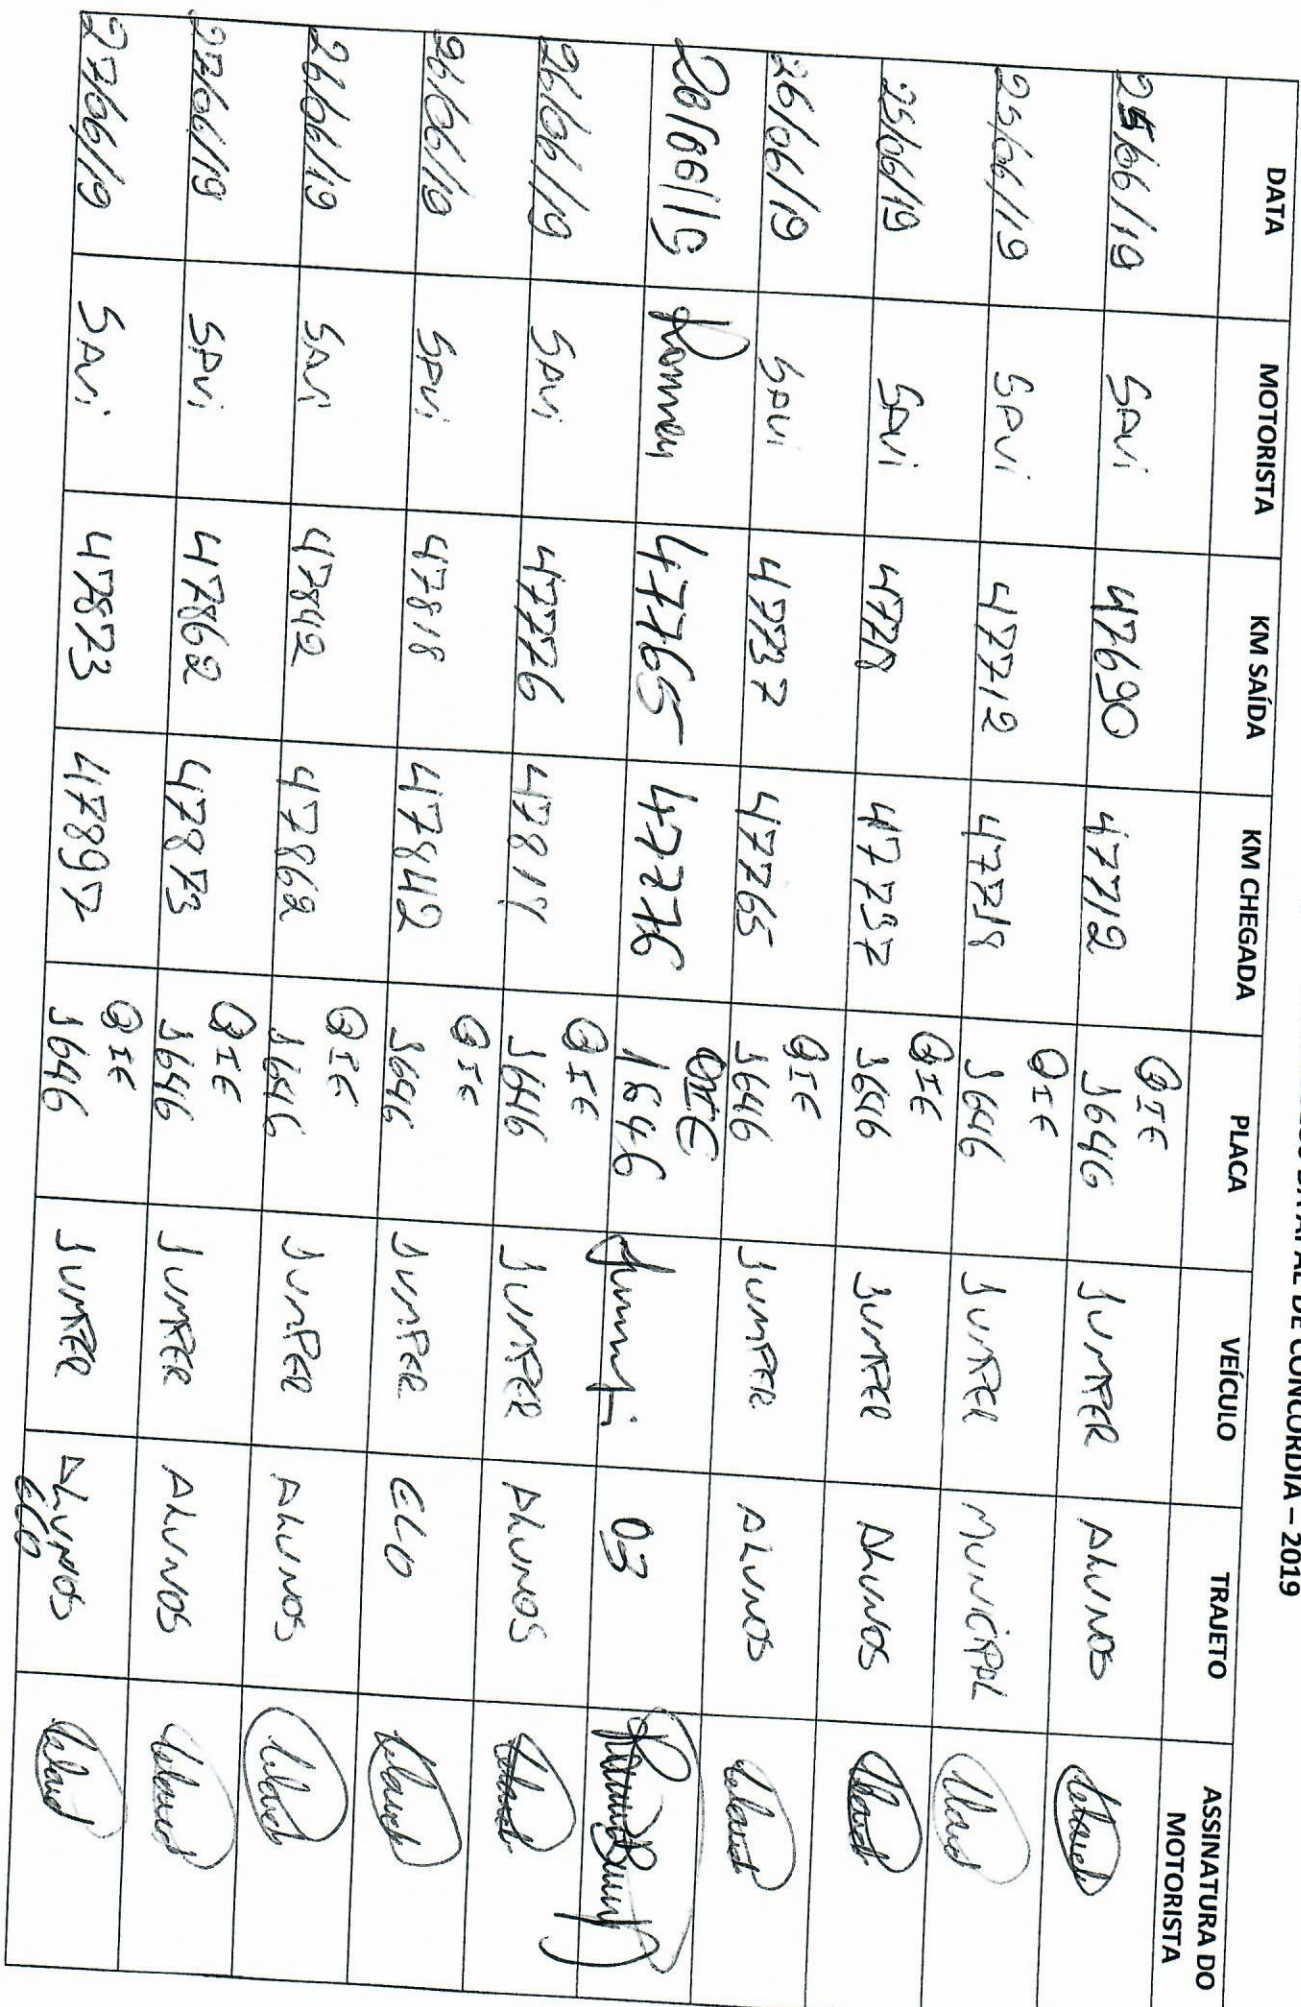 DA APAE DE CONCÓRDIA – 2019
DATA MOTORISTA KM SAÍDA KM CHEGADA PLACA VEÍCULO TRAJETO ASSINATURA DO MOTORISTA
25/06/19 SAVI 47690 47712 QIE 1646 JUMPER ALUNOS
25/06/19 SAVI 47712 47718 QIE 1646 JUMPER MUNICIPAL
25/06/19 SAVI 47718 47737 QIE 1646 JUMPER ALUNOS
26/06/19 SAVI 47737 47765 QIE 1646 JUMPER ALUNOS
26/06/19 47765 47776 QIE 1646 03
26/06/19 SAVI 47776 QIE 1646 JUMPER ALUNOS
26/06/19 SAVI 47818 47842 QIE 1646 JUMPER ELO
26/06/19 SAVI 47842 47862 QIE 1646 JUMPER ALUNOS
27/06/19 SAVI 47862 47873 QIE 1646 JUMPER ALUNOS
27/06/19 SAVI 47873 47897 QIE 1646 JUMPER ALUNOS ELO